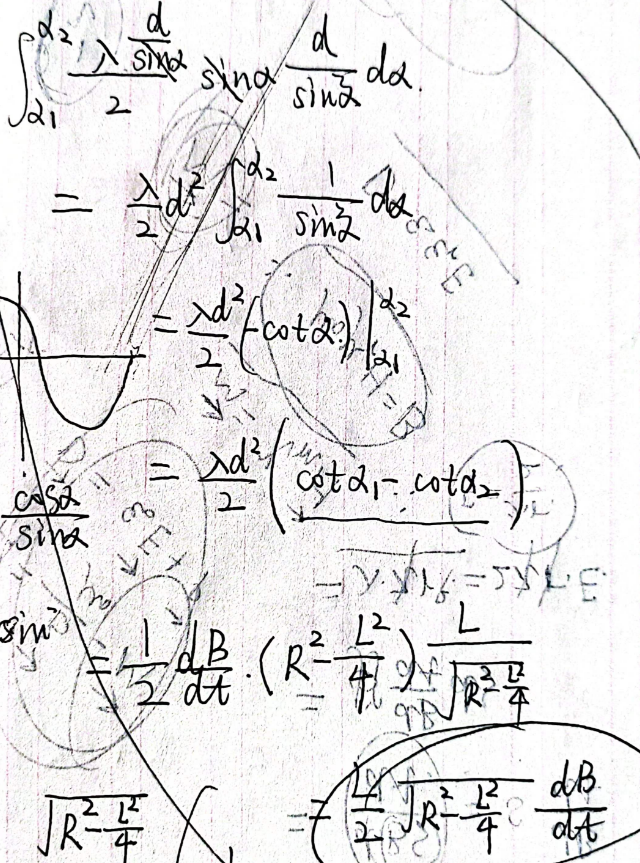 ∫_{α1}^{α2} λ (d/sinα)/2 sinα d/sin²α dα
= λ/2 d² ∫_{α1}^{α2} 1/sin²α dα
= λd²/2 (-cotα)|_{α1}^{α2}
= λd²/2 (cotα1 - cotα2)
cosα/sinα
sin²
= 1/2 dB/dt · (R² - L²/4) L/√(R² - L²/4)
√(R² - L²/4)
= L/2 √(R² - L²/4) dB/dt